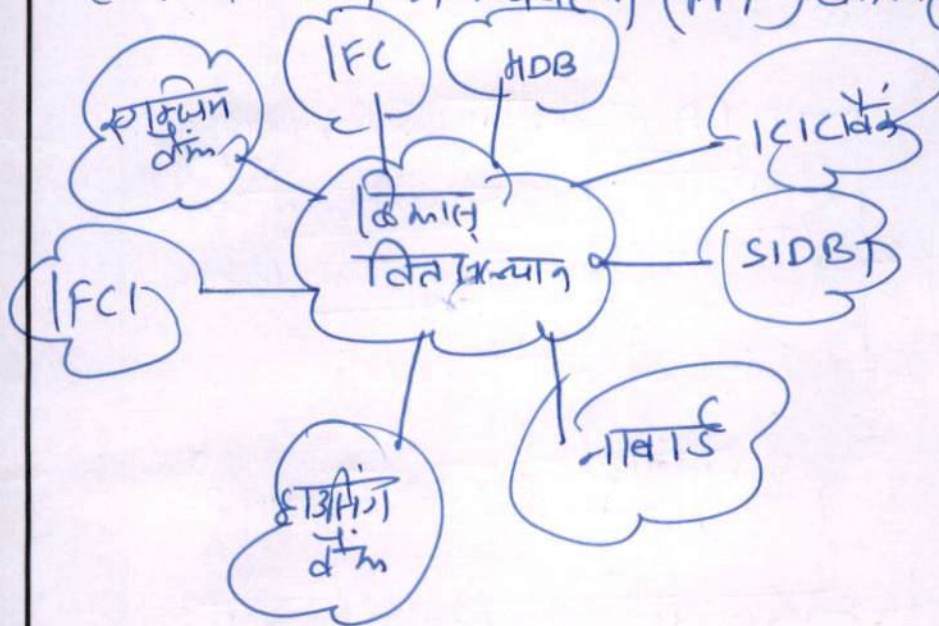 IFC
HDB
एक्जिम
बैंक
ICICI बैंक
विकास
वित्त संस्थान
SIDBI
IFCI
नाबार्ड
हाउसिंग
बैंक